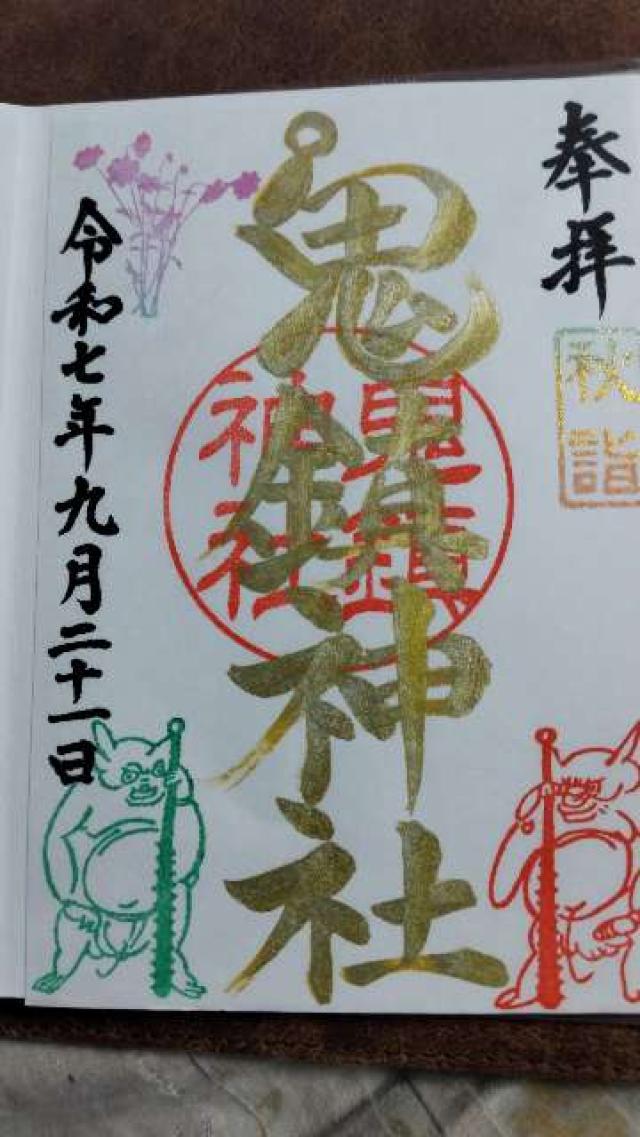 奉拝
秋詣
鬼鎮神社
鬼鎮
神社
令和七年九月二十一日